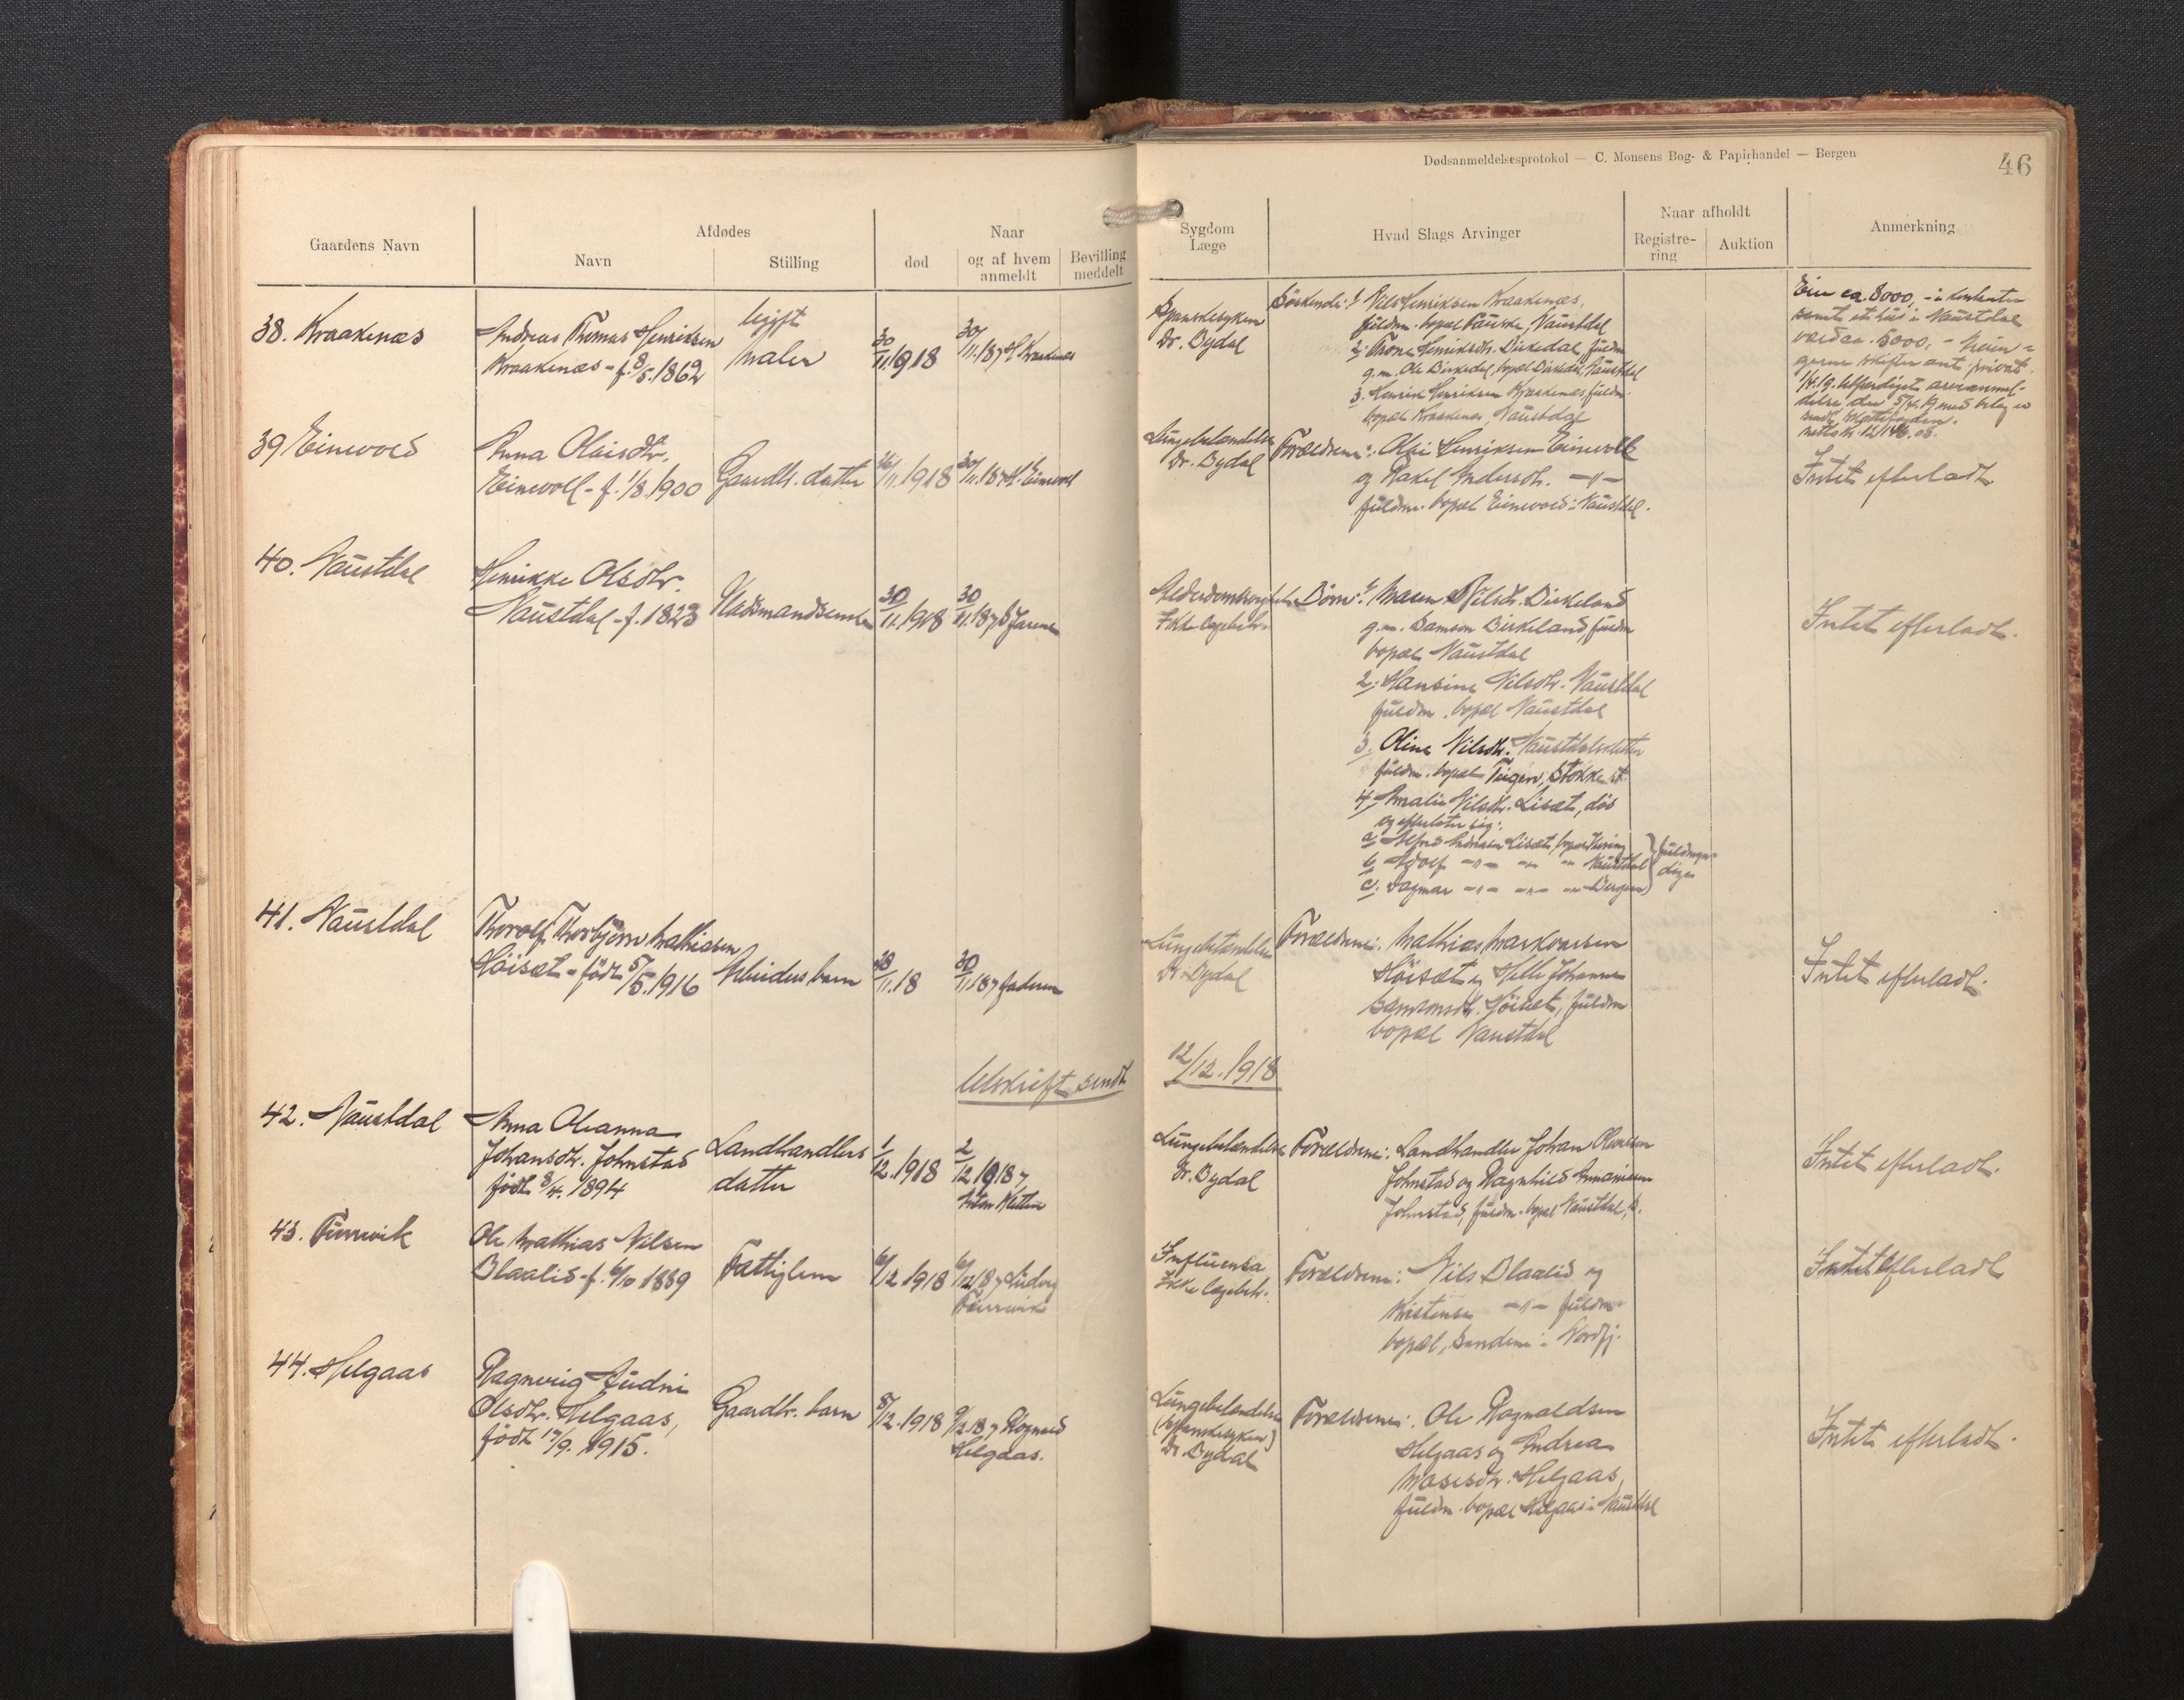 Dødsanmeldelsesprotokol — C. Monsens Bog- & Papirhandel — Bergen
46
Gaardens Navn
Afdødes
Navn
Stilling
Naar
død
og af hvem
anmeldt
Bevilling
meddelt
Sygdom
Læge
Hvad Slags Arvinger
Naar afholdt
Registre-
ring
Auktion
Anmerkning
38. Kraakenæs
Andreas Thomas Henriksen
Kraakenæs - f. 8/5.1862
Ugift
maler
30/11.1918
30/11.18 Kraakenæs
Spanskesyken
Dr. Dydal
Søskende: 1. Nils Henriksen Kraakenæs,
fuldm. bopæl Naustdal
2. Henriksdtr. Birkedal, fuldm
g.m. Ole Birkedal, bopæl Birkedal, Naustdal
3. Henrik Henriksen Kraakenæs, fuldm.
bopæl Kraakenæs, Naustdal
Eier ca. 8000,- i kontanter
samt et hus i Naustdal
værd ca. 5000,-
skifte privat.
39 Eimvold
Anna Olaisdtr.
Eimvoll - f. 1/8.1900
Gaardbr. datter
/11.1918
30/11.18 Eimvoll
Lungebetændelse
Dr. Dydal
Forældrene: Olai Henriksen Eimvoll
og Rakel Andersdtr. -"-
fuldm. bopæl Eimvold i Naustdal.
Intet efterladt
40. Naustdal
Henrikke Olsdtr.
Naustdal - f. 1823
Pladsmandsenke
30/11.1918
30/11.18
Alderdomssvaghet
Ikke lægebeh.
Børn: 1. Maren Nilsdtr. Birkeland
g.m. Samson Birkeland, fuldm
bopæl Naustdal
2. Hansine Nilsdtr. Naustdal
fuldm. bopæl Naustdal
3. Oline Nilsdtr.
fuldm. bopæl Teigen, Stokke st.
4. Amalie Nilsdtr. Lisæt, død
og efterlater sig:
a. Alfred Lisæt, bopæl
b. Adolf -"- -"- -"- Naustdal
c. Dagmar -"- -"- -"- Bergen
fuldmyn-
dige
Intet efterladt.
41. Naustdal
Thorolf Thorbjørn Mathiasen
Høisæt - født 5/5.1916
Arbeiders barn
28/11.18
30/11.18 faderen
Lungebetændelse
Dr. Dydal
Forældrene: Mathias Markvarsen
Høisæt og Johanne
Samsonsdtr. Høisæt, fuldm
bopæl Naustdal
Intet efterladt.
Utskrift sendt
12/12.1918
42. Naustdal
Anna Oleanna
Johansdtr. Johnstad
født 8/4.1894
Landhandlers
datter
1/12.1918
2/12 1918,
Lungebetændelse
Dr. Dydal
Forældrene: Landhandler Johan
Johnstad og Ragnhild
Johnstad, fuldm. bopæl Naustdal,
Intet efterladt.
43. Furevik
Ole Mathias Nilsen
Blaalid - f. 6/10 1889
Fattiglem
6/12 1918
6/12 18, Ludvig
Furevik
Influensa
Ikke lægebeh.
Forældrene: Nils Blaalid og
Kristense -"- fuldm
bopæl, Sandene i Nordfj.
Intet efterladt
44. Helgaas
Ragnveig Gudni
Olsdtr. Helgaas,
født 17/9. 1915.
Gaardbr. barn
8/12.1918
9/12 18, Rognald
Helgaas.
Lungebetændelse
(Spanskesyken)
Dr. Dydal
Forældrene: Ole Rognaldsen
Helgaas og Andrea
Mosesdtr. Helgaas,
fuldm. bopæl Helgaas i Naustdal
Intet efterladt.